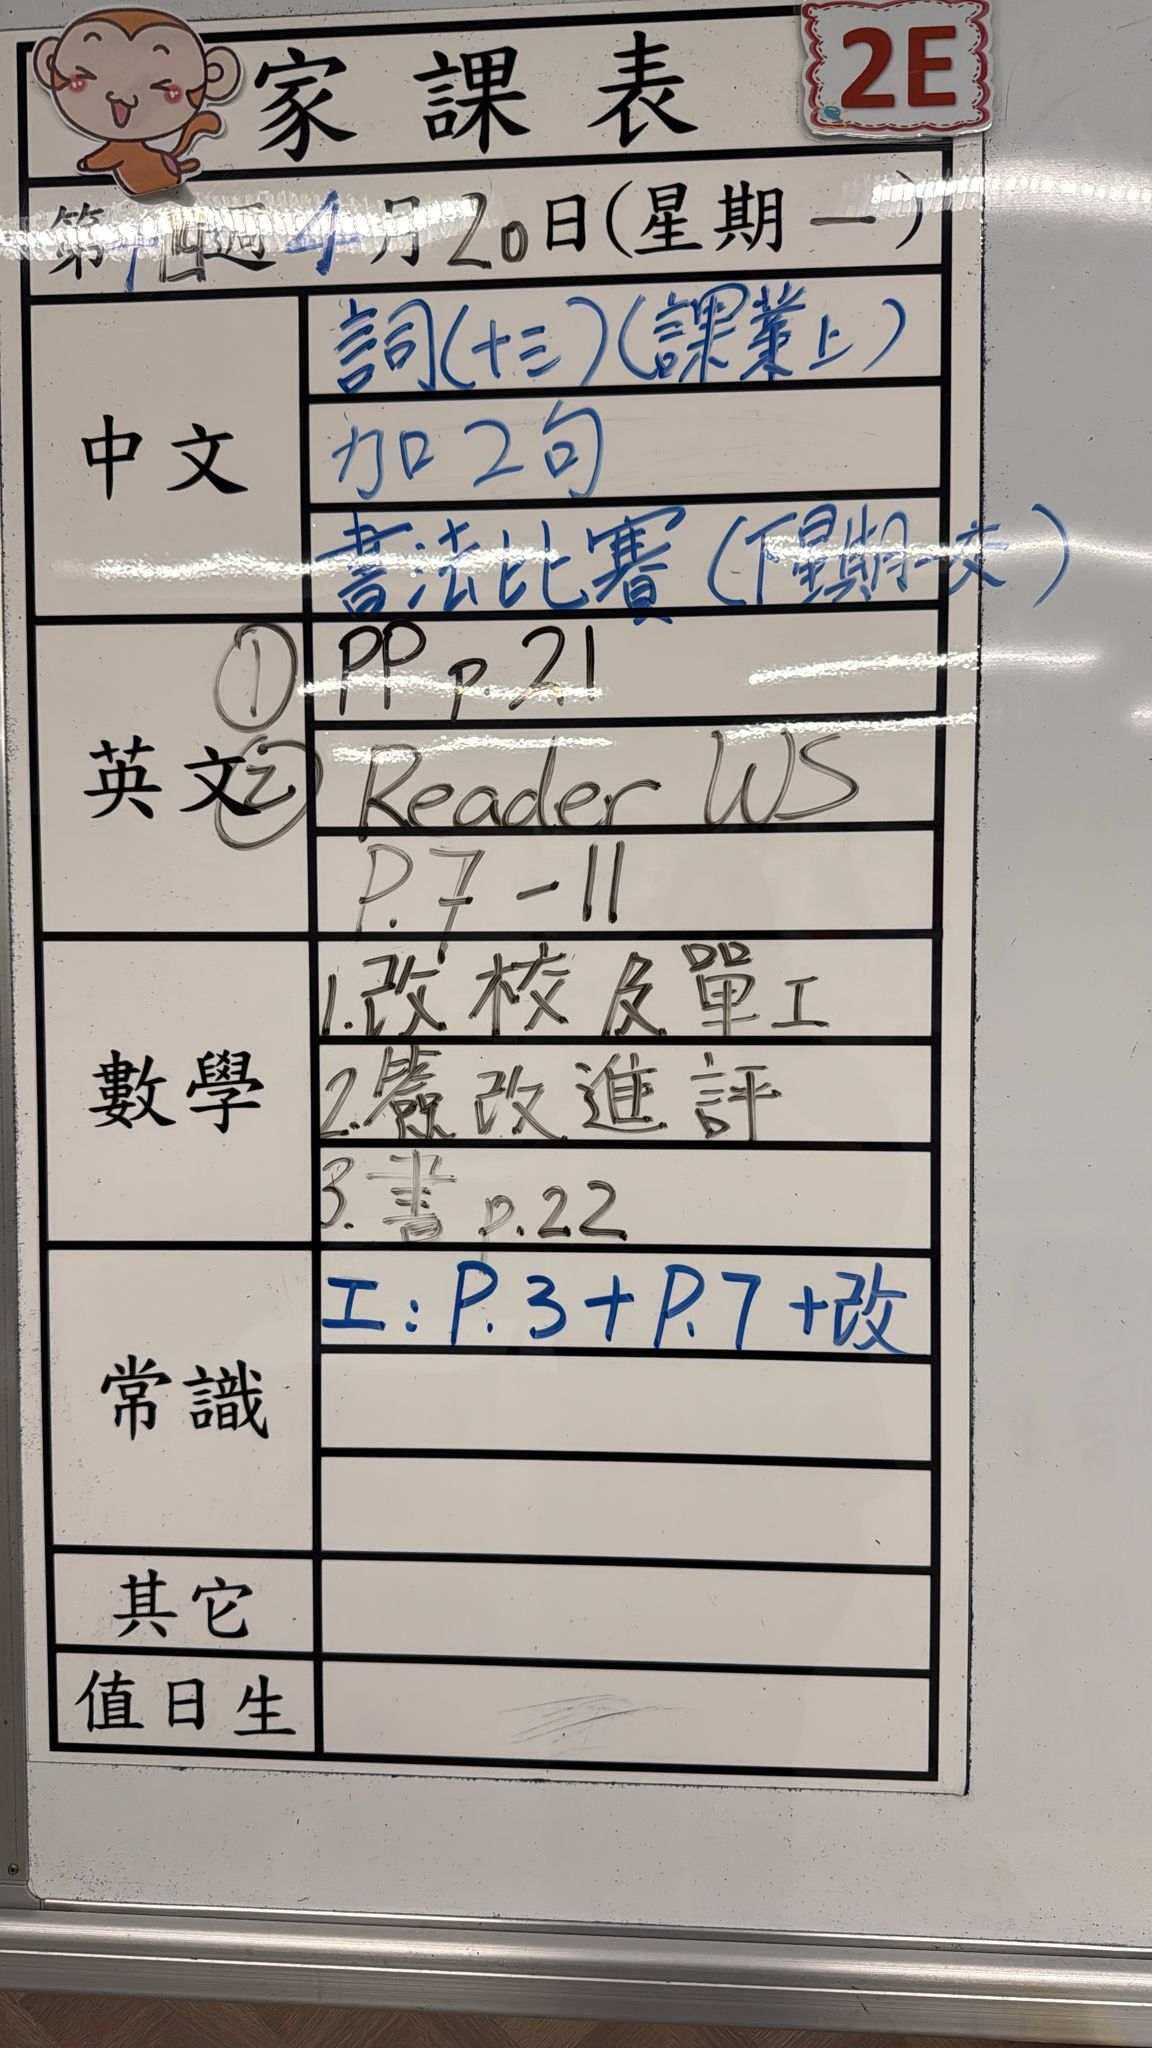 家課表
2E
第十四週4月20日(星期一)
中文
詞(十三)(課業上)
加2句
書法比賽(下星期一交)
英文
① PP p.21
② Reader WS
P.7-11
數學
1.改校及單工
2.簽改進評
3.書p.22
常識
工:P.3+P.7+改
其它
值日生